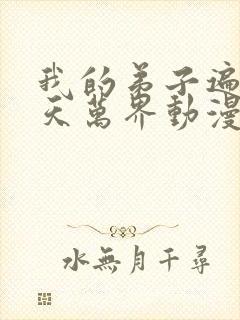 我的弟子遍
天萬界動漫
水無月千尋